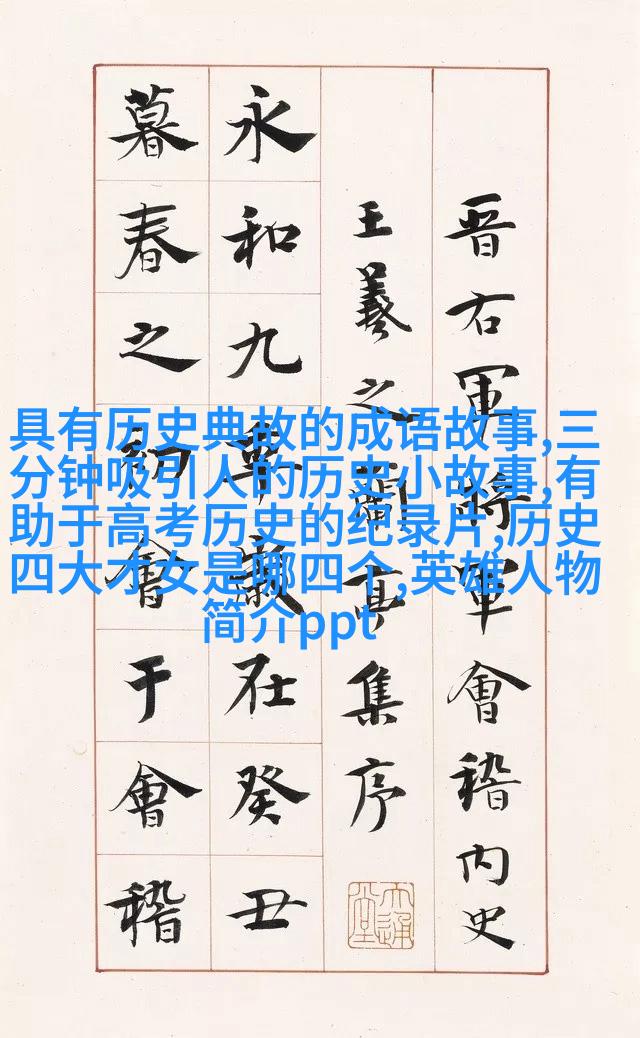 晋右軍将軍會稽内史
王羲之蘭亭集序
永和九年歲在癸丑
暮春之初會于會稽
具有历史典故的成语故事,三
分钟吸引人的历史小故事,有
助于高考历史的纪录片,历史
四大才女是哪四个,英雄人物
简介ppt